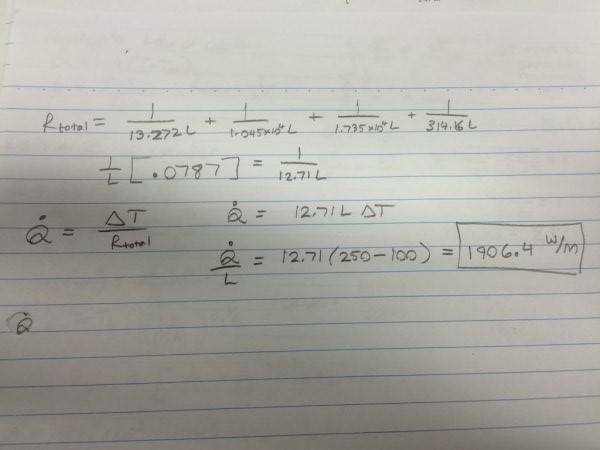 R_total = 1/13.272L + 1/1.045×10⁴L + 1/1.735×10⁴L + 1/314.16L
1/L [.0787] = 1/12.71L
Q̇ = ΔT/R_total    Q̇ = 12.71L ΔT
Q̇/L = 12.71(250-100) = 1906.4 W/m
Q̇